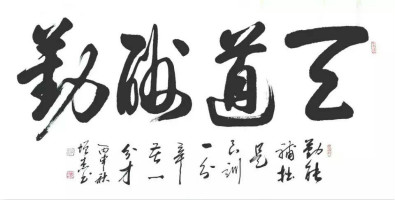 天道酬勤
勤能
補拙
是
良訓
一分
辛
苦一
分才
丙申秋